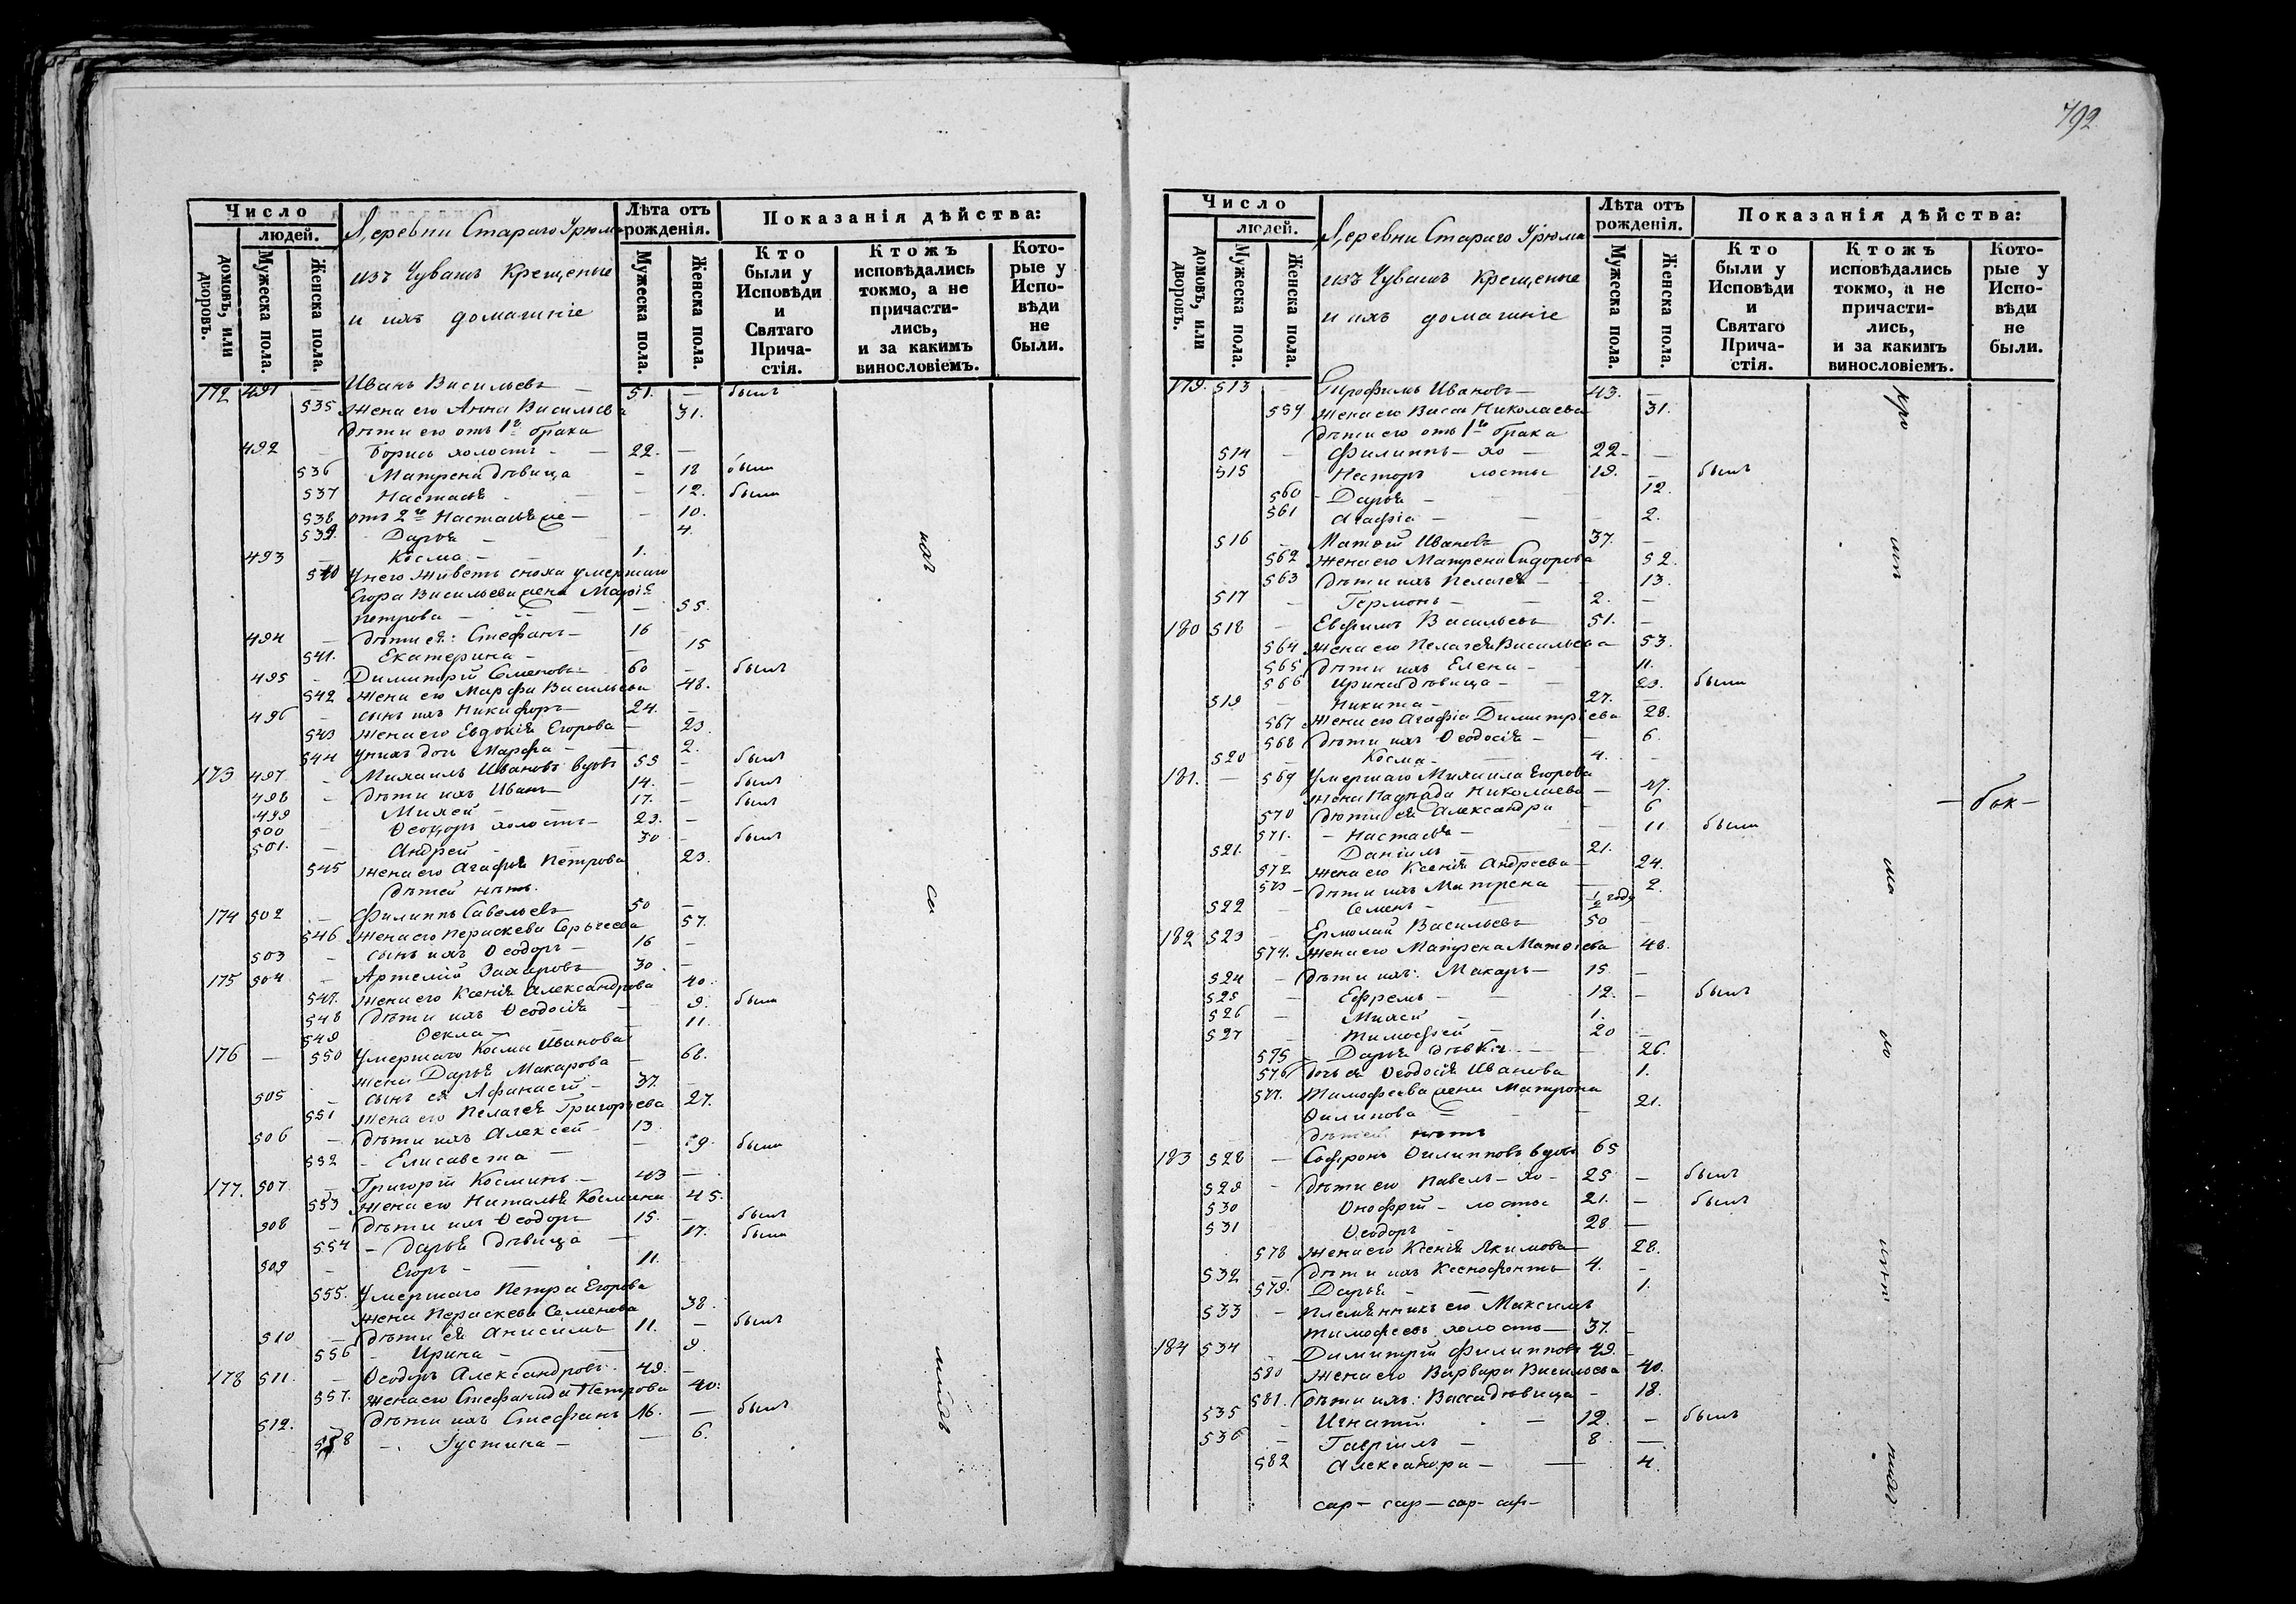 Число
людей.
домовъ, или дворовъ.
Мужеска пола.
Женска пола.
Деревни Стараго Урюма
изъ Чувашъ крещеные
и ихъ домашніе
Лѣта отъ рожденія.
Мужеска пола.
Женска пола.
Показанія дѣйства:
Кто были у Исповѣди и Святаго Причастія.
Ктожъ исповѣдались токмо, а не причастились, и за какимъ винословіемъ.
Которые у Исповѣди не были.
172 491 — Иванъ Васильевъ — 51. — былъ
535 Жена его Анна Васильева 31.
дѣти его отъ 1го брака
492 — Борисъ холостъ — 22. —
536 Матрена дѣвица — 18 была
537 Настасья — — 12. была
538 отъ 2го Настасья же — — 10.
539. Дарья — 4.
493 — Косма — 1.
540 У него живетъ сноха умершаго
Егора Васильева жена Марія
Петрова — — 55.
494 — дѣти ея: Стефанъ — 16 —
541. Екатерина — — 15
495 — Димитрій Семеновъ 60 — былъ
542 Жена его Марфа Васильева 48.
496 — сынъ ихъ Никифоръ — 24. —
543 Жена его Евдокія Егорова — 23.
544 У нихъ дочь Марфа — — 2.
173 497 — Михаилъ Ивановъ вдовъ 55 — былъ
498 — дѣти ихъ Иванъ 14. — былъ
499 Михей — 17. — былъ
500 — Ѳеодоръ холостъ — 23. —
501. — Андрей — 30 — былъ
545 Жена его Агафья Петрова 23.
дѣтей нѣтъ.
174 502 — Филиппъ Савельевъ 50 —
546 Жена его Параскева Сергѣева 57.
503 — сынъ ихъ Ѳеодоръ — 16 —
175 504 — Артемій Захаровъ 30. —
547. Жена его Ксенія Александрова 40.
548 дѣти ихъ Ѳеодосія — 9. была
549 Ѳекла — — 11.
176 — 550 Умершаго Космы Иванова
жена Дарья Макарова — 68.
505 — сынъ ея Афанасій — 37. —
551 Жена его Пелагея Григорьева 27.
506 — дѣти ихъ Алексей — 13. —
552 — Елисавета — — 9. была
177. 507. — Григорій Косминъ — 43 —
553 Жена его Наталья Космина 45.
508 — дѣти ихъ Ѳеодоръ 15. — былъ
554 — Дарья дѣвица — 17. была
509 — Егоръ — — 11.
555. Умершаго Петра Егорова
жена Параскева Семенова 38.
510 — дѣти ея Анисимъ 11. — былъ
556 — Ирина — — 9.
178 511. — Ѳеодоръ Александровъ 49. —
557. Жена его Стефанида Петрова 40.
512. — дѣти ихъ Стефанъ 16. — былъ
558 — Іустина — — 6.
792
Число
людей.
домовъ, или дворовъ.
Мужеска пола.
Женска пола.
Деревни Стараго Урюма
изъ Чувашъ крещеные
и ихъ домашніе
Лѣта отъ рожденія.
Мужеска пола.
Женска пола.
Показанія дѣйства:
Кто были у Исповѣди и Святаго Причастія.
Ктожъ исповѣдались токмо, а не причастились, и за какимъ винословіемъ.
Которые у Исповѣди не были.
179. 513 — Трофимъ Ивановъ — 43. —
559 Жена его Васса Николаева 31.
дѣти его отъ 1го брака
514 — Филиппъ — хо — 22 —
515 Несторъ лосты 19. — былъ
560 — Дарья — 12.
561 Агафія — — 2.
516 — Матѳей Ивановъ 37. —
562 Жена его Матрена Сидорова 52.
563 дѣти ихъ Пелагея — — 13.
517 — Гермонъ — — 2. —
180 518 — Евфимъ Васильевъ 51. —
564 Жена его Пелагея Васильева 53.
565 дѣти ихъ Елена — — 11.
566 Ирина дѣвица — 23. была
519 — Никита — — 27. —
567 Жена его Агафіа Димитріева 28.
568 дѣти ихъ Ѳеодосія — — 6.
520 — Косма — 4. —
181. — 569 Умершаго Михаила Егорова
жена Надежда Николаева — 47.
— бок —
570 дѣти ея Александра — 6
571. — Настасья — — 11 была
521. — Даніилъ — 21.
572 Жена его Ксенія Андреева — 24.
573 — дѣти ихъ Матрена — 2.
522 — Семенъ — ½ году
182 523 — Ермолай Васильевъ 50 —
574. Жена его Матрена Матѳіева 48.
524 — дѣти ихъ: Макаръ — 15. —
525 — Ефремъ — — 12. — былъ
526 — Михей — 1.
527 — Тимофей — 20 —
575 — Дарья дѣвка — — 26.
576 дочь ея Ѳеодосія Иванова 1.
577. Тимофеева жена Матрона
Филипова — — 21.
дѣтей нѣтъ
183 528 — Софронъ Филипповъ вдовъ 65
529 — дѣти его Павелъ — хо — 25 — былъ
530 Онофрій — лосты 21. — былъ
531 Ѳеодоръ — 28 —
578 Жена его Ксенія Якимова — 28.
532 — дѣти ихъ Ксенофонтъ 4. —
579. Дарья — — 1.
533 — племянникъ его Максимъ
Тимофеевъ холостъ — 37. —
184 534 — Димитрій Филипповъ 49. —
580 Жена его Варвара Васильева 40.
581. дѣти ихъ: Васса дѣвица — 18.
535 — Игнатій — 12. — былъ
536 — Гавріилъ — 8 —
582 Александра — — 4.